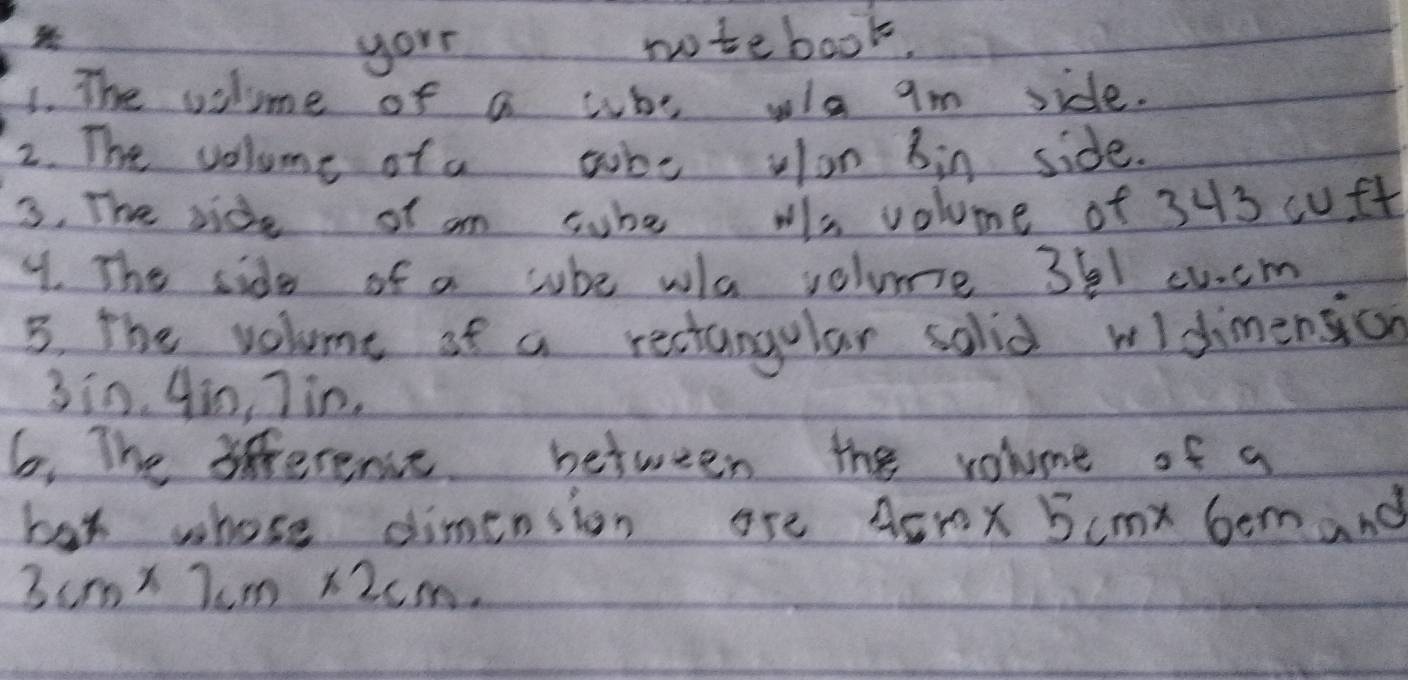 * your notebook.
1. The volume of a cube w/a 9m side.
2. The volume of a cube w/an 8in side.
3. The side of an cube w/a volume of 343 cu.ft
4. The side of a cube w/a volume cu.cm
5. The volume of a rectangular solid w/dimension
3in, 4in, 7in.
6. The difference between the volume of a
box whose dimension are 4cm x 5cm x 6cm and
3cm x 7cm x 2cm.